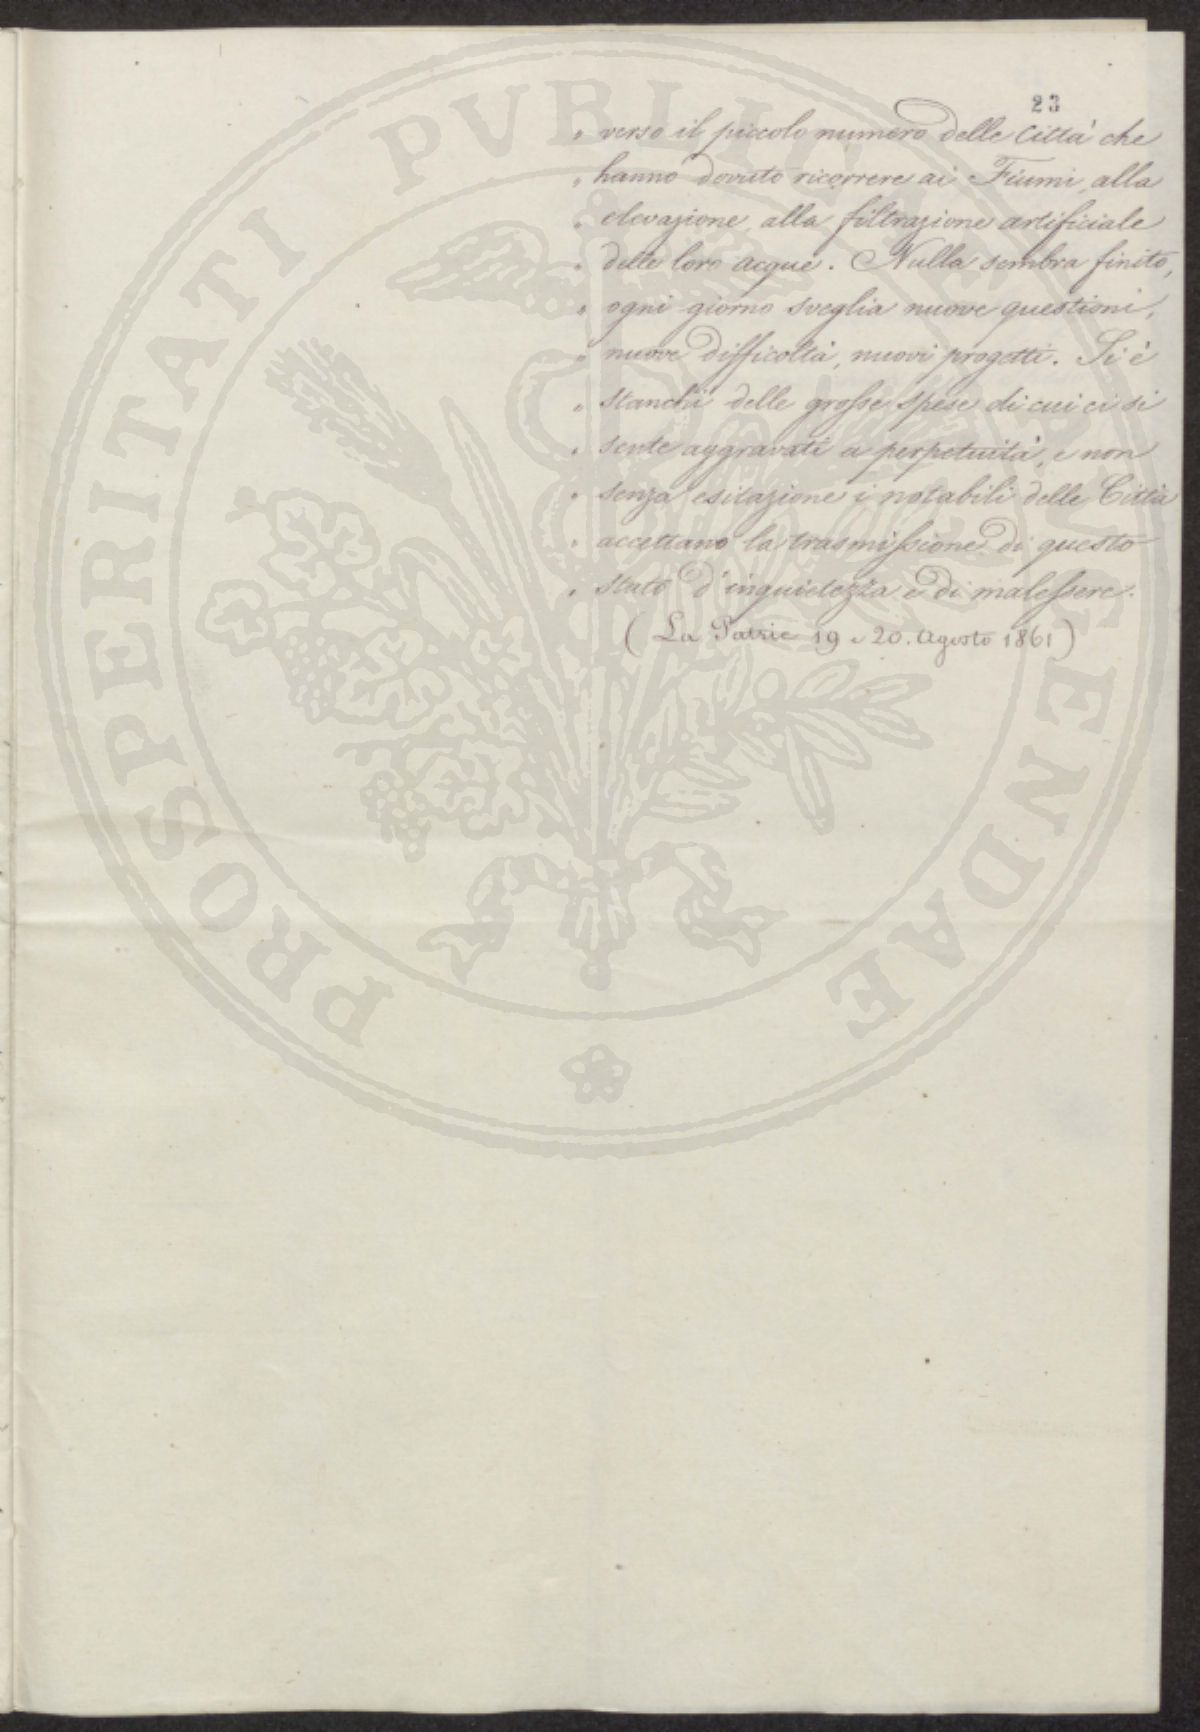 23
" verso il piccolo numero delle Città che
" hanno dovuto ricorrere ai Fiumi, alla
" elevazione, alla filtrazione artificiale
" delle loro acque. Nulla sembra finito,
" ogni giorno sveglia nuove questioni,
" nuove difficoltà, nuovi progetti. Si è
" stanchi delle grosse spese di cui ci si
" sente aggravati a perpetuità, e non
" senza esitazione i notabili delle Città
" accettano la trasmissione di questo
" stato d'inquietezza e di malessere.
( La Patrie 19 e 20. Agosto 1861 )
PROSPERITATI PVBLICAE AVGENDAE